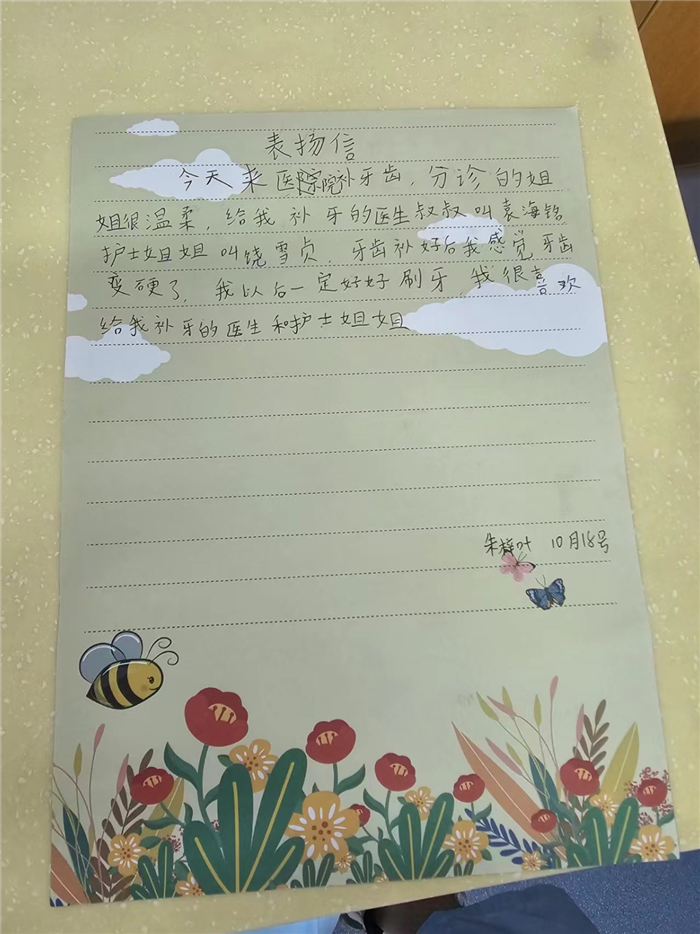 表扬信
今天来医院补牙齿，分诊的姐
姐很温柔，给我补牙的医生叔叔叫袁海铭
护士姐姐叫饶雪贞，牙齿补好后我感觉牙齿
变硬了，我以后一定好好刷牙，我很喜欢
给我补牙的医生和护士姐姐
朱梓叶 10月18号